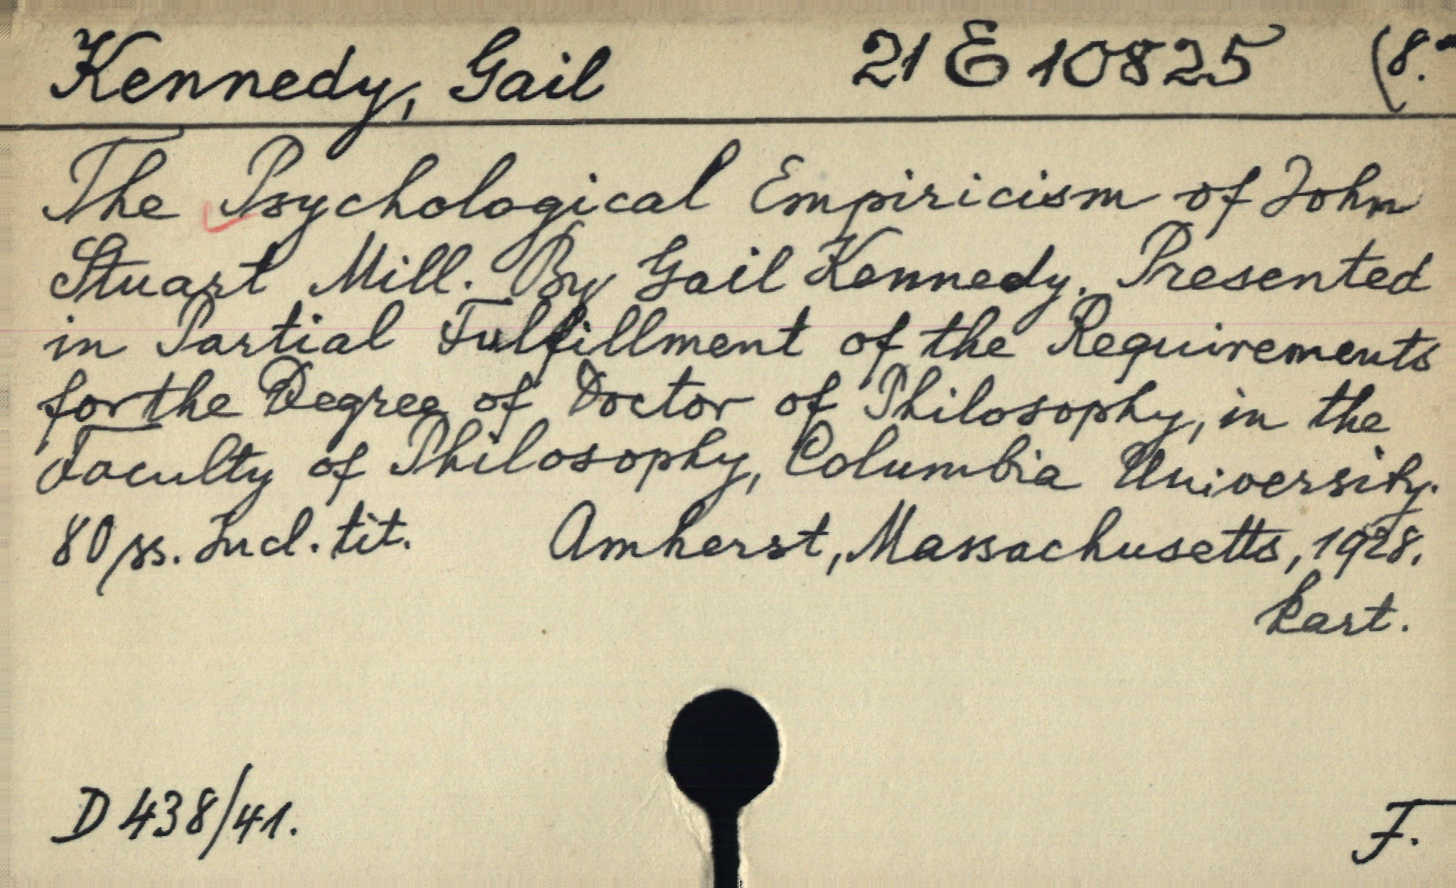 Kennedy, Gail 21 E 10825 (8.°
The Psychological Empiricism of John
Stuart Mill. By Gail Kennedy. Presented
in Partial Fulfillment of the Requirements
for the Degree of Doctor of Philosophy, in the
Faculty of Philosophy, Columbia University.
80 ss. Incl. tit. Amherst, Massachusetts, 1928.
kart.
D 438/41. F.